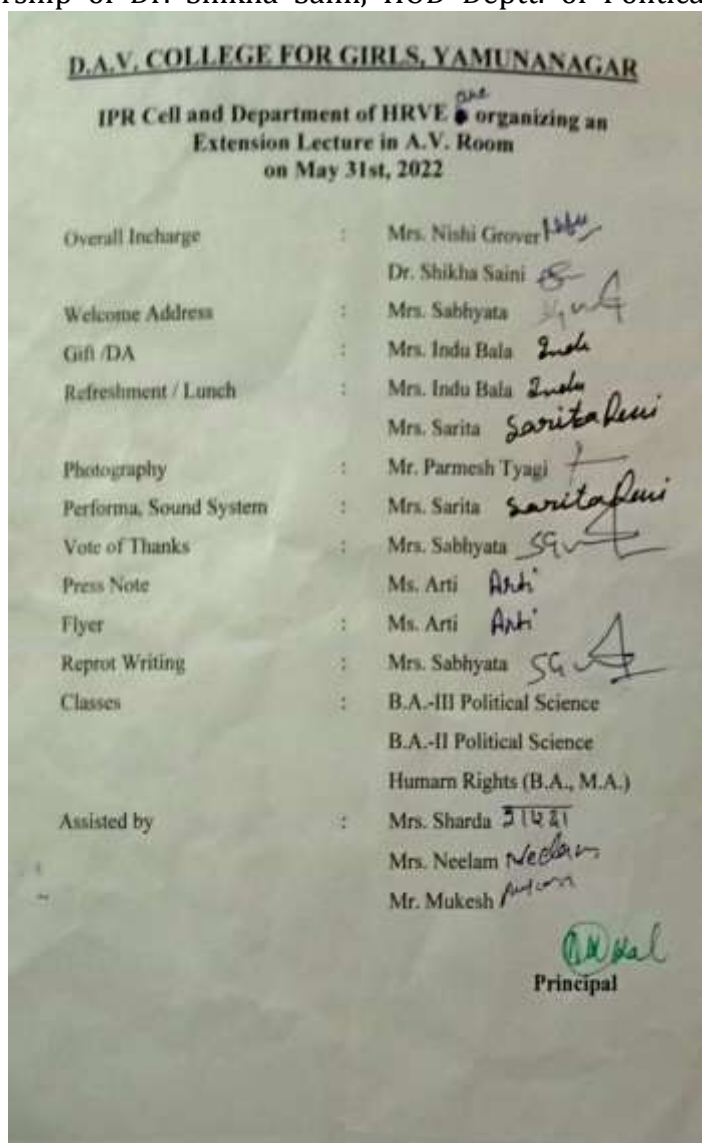 rship of Dr. Shikha Saini, HOD Deptt. of Politica
D.A.V. COLLEGE FOR GIRLS, YAMUNANAGAR
are
IPR Cell and Department of HRVE organizing an
Extension Lecture in A.V. Room
on May 31st, 2022
Overall Incharge : Mrs. Nishi Grover
Dr. Shikha Saini
Welcome Address : Mrs. Sabhyata
Gift /DA : Mrs. Indu Bala Indu
Refreshment / Lunch : Mrs. Indu Bala Indu
Mrs. Sarita Sarita Devi
Photography : Mr. Parmesh Tyagi
Performa, Sound System : Mrs. Sarita Sarita Devi
Vote of Thanks : Mrs. Sabhyata
Press Note Ms. Arti Arti
Flyer : Ms. Arti Arti
Reprot Writing : Mrs. Sabhyata
Classes : B.A.-III Political Science
B.A.-II Political Science
Humarn Rights (B.A., M.A.)
Assisted by : Mrs. Sharda शारदा
Mrs. Neelam Neelam
Mr. Mukesh
Principal